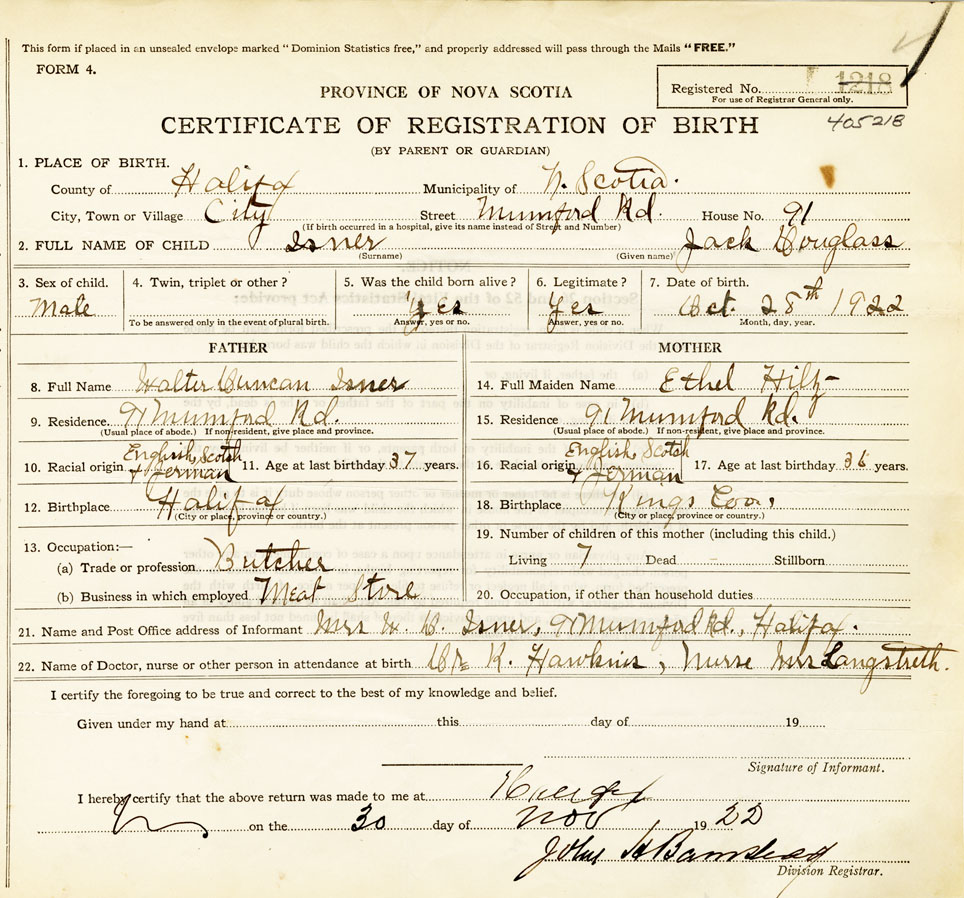 This form if placed in an unsealed envelope marked "Dominion Statistics free," and properly addressed will pass through the Mails "FREE."
FORM 4.
Registered No. 1218
For use of Registrar General only.
PROVINCE OF NOVA SCOTIA
405218
CERTIFICATE OF REGISTRATION OF BIRTH
(BY PARENT OR GUARDIAN)
1. PLACE OF BIRTH.
County of Halifax Municipality of N. Scotia.
City, Town or Village City Street Mumford Rd. House No. 91
(If birth occurred in a hospital, give its name instead of Street and Number)
2. FULL NAME OF CHILD Isner Jack Douglass
(Surname) (Given name)
3. Sex of child. 4. Twin, triplet or other? 5. Was the child born alive? 6. Legitimate? 7. Date of birth.
Male Yes Yes Oct. 28th 1922
To be answered only in the event of plural birth. Answer, yes or no. Answer, yes or no. Month, day, year.
FATHER MOTHER
8. Full Name Walter Duncan Isner 14. Full Maiden Name Ethel Hiltz
9. Residence 91 Mumford Rd. 15. Residence 91 Mumford Rd.
(Usual place of abode.) If non-resident, give place and province. (Usual place of abode.) If non-resident, give place and province.
10. Racial origin English, Scotch & German 11. Age at last birthday 37 years. 16. Racial origin English, Scotch & German 17. Age at last birthday 36 years.
12. Birthplace Halifax 18. Birthplace Kings Co.
(City or place, province or country.) (City or place, province or country.)
13. Occupation:— 19. Number of children of this mother (including this child.)
(a) Trade or profession Butcher Living 7 Dead - Stillborn
(b) Business in which employed Meat Store 20. Occupation, if other than household duties
21. Name and Post Office address of Informant Mrs W. D. Isner, 91 Mumford Rd., Halifax.
22. Name of Doctor, nurse or other person in attendance at birth Dr. K. Hawkins, Nurse Mrs Langstreth.
I certify the foregoing to be true and correct to the best of my knowledge and belief.
Given under my hand at this day of 19
Signature of Informant.
I hereby certify that the above return was made to me at Halifax
on the 30 day of Nov 1922
John H Barnstead
Division Registrar.